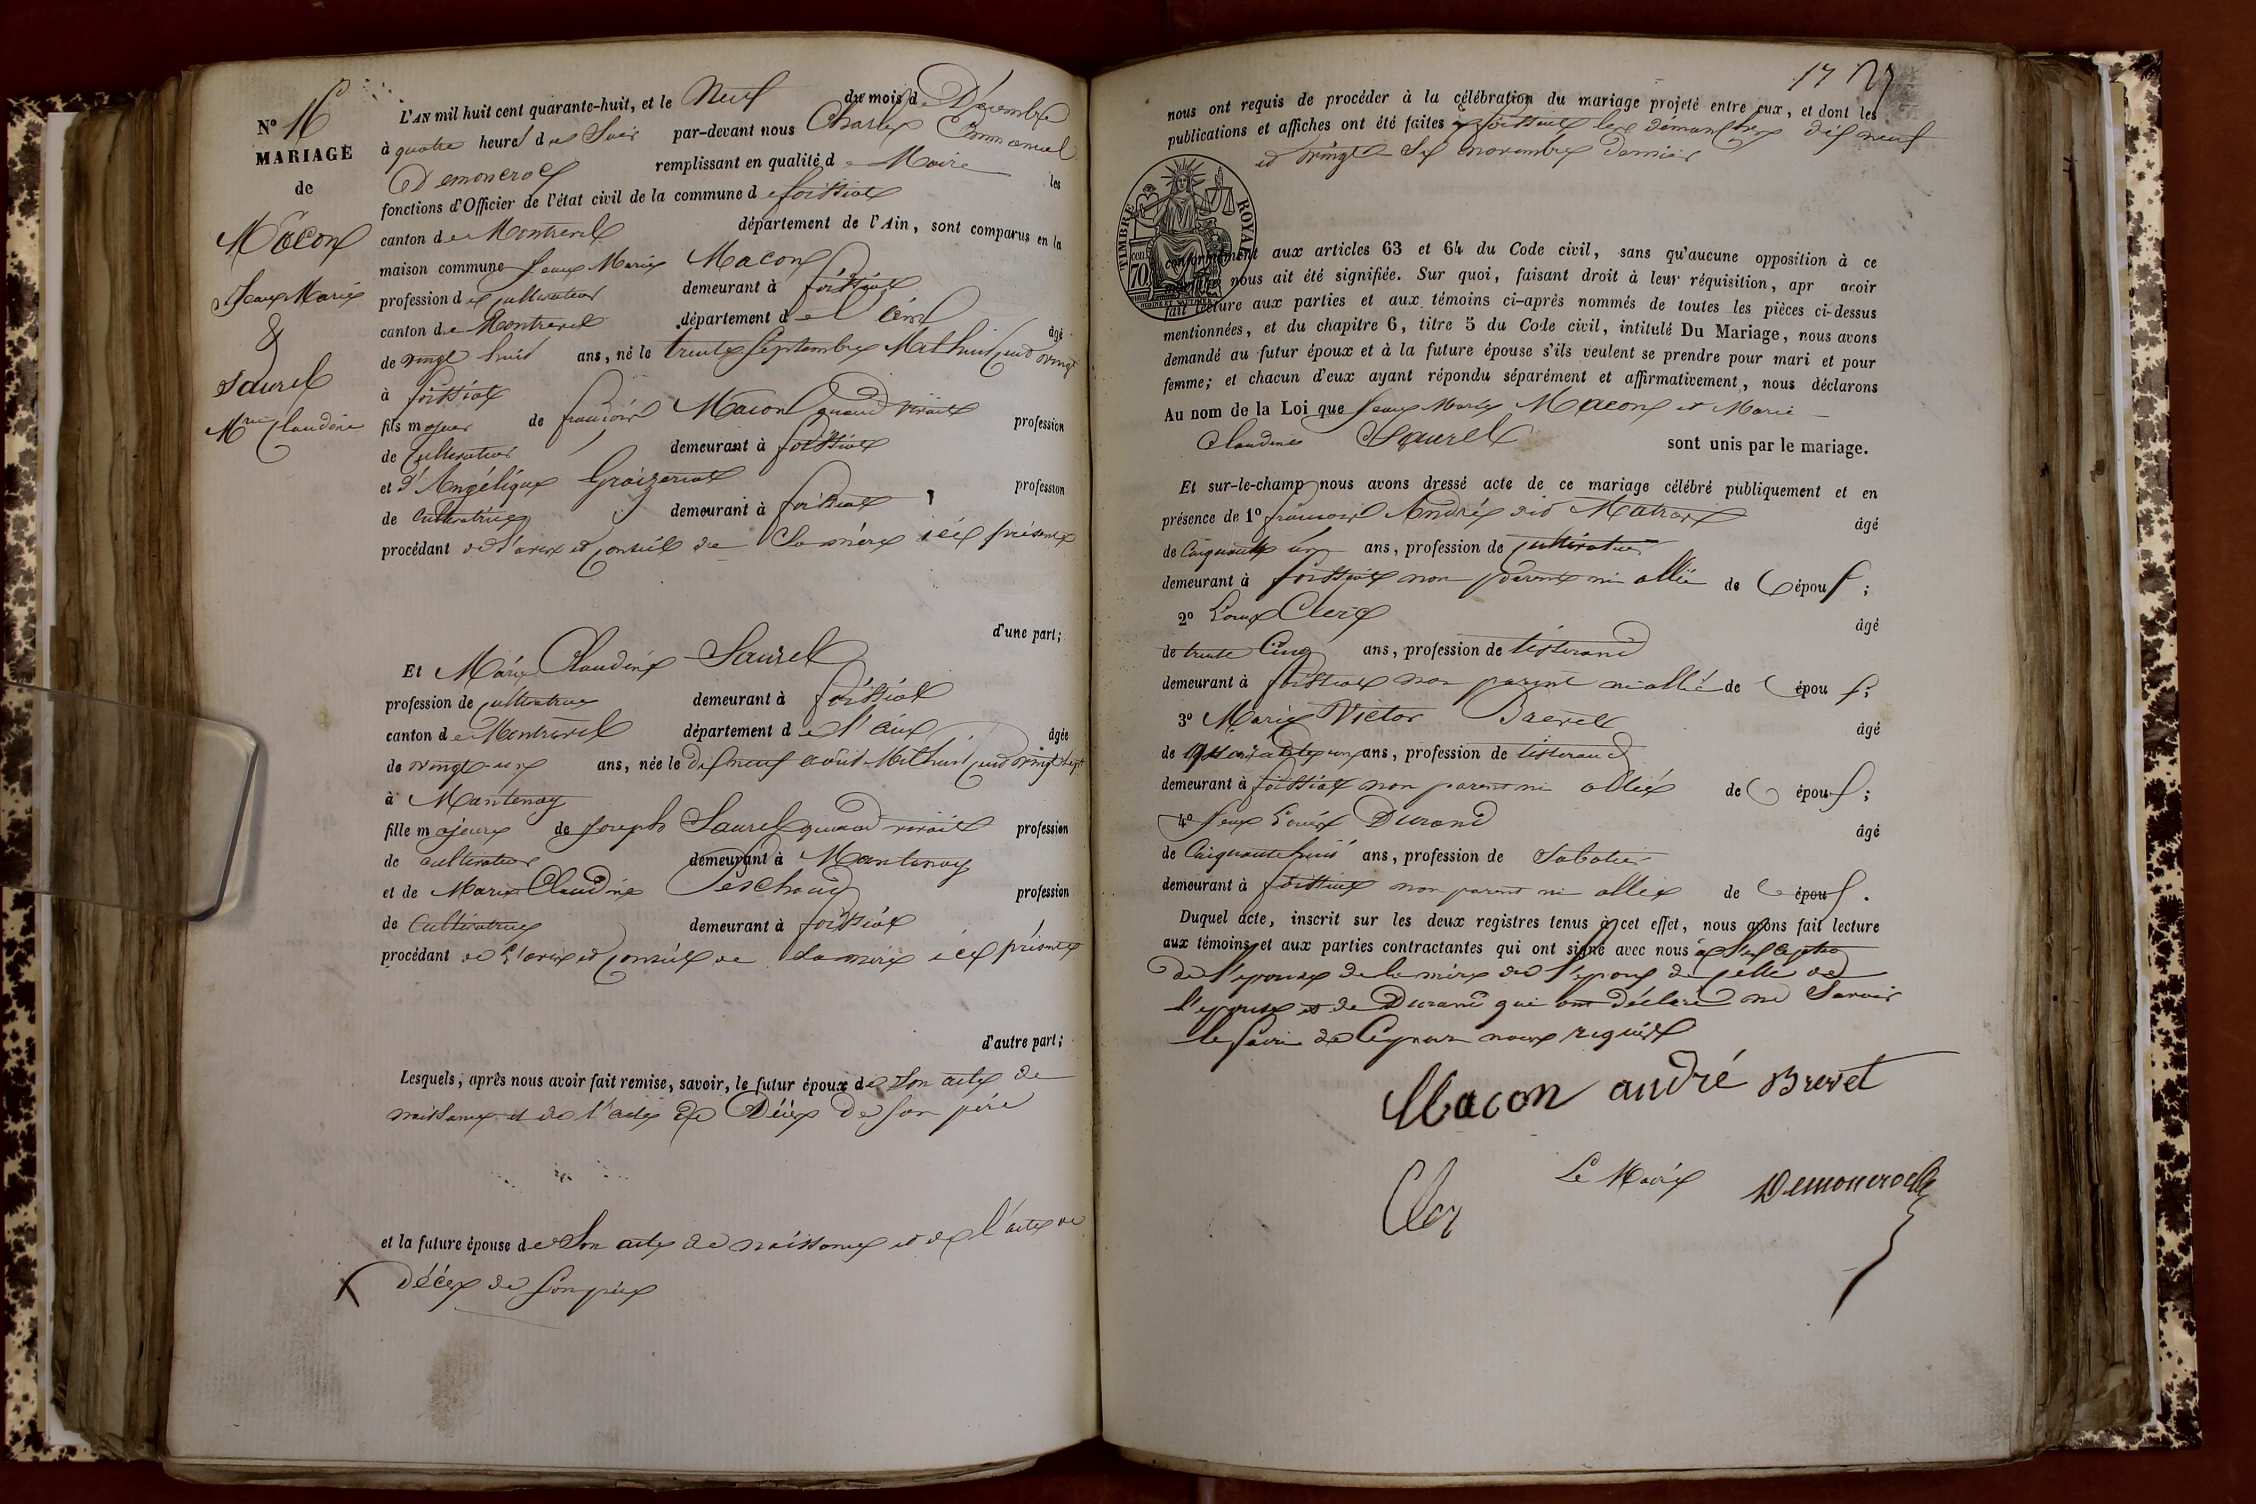 N° 16
MARIAGE
de
Macon
Jean Marie
&
Saurel
Mrie Claudine
L'AN mil huit cent quarante-huit, et le Neuf du mois de Décembre
à quatre heures du Soir par-devant nous Charles Emmanuel
Demoncroc remplissant en qualité de Maire les
fonctions d'Officier de l'état civil de la commune de foissiat
canton de Montrevel département de l'Ain, sont comparus en la
maison commune Jean Marie Macon
profession de cultivateur demeurant à foissiat
canton de Montrevel département de l'ain âgé
de vingt huit ans, né le trente Septembre Mil huit cent vingt
à foissiat
fils majeur de françois Macon quand vivait profession
de Cultivateur demeurant à foissiat
et d'Angélique profession
de Cultivatrice demeurant à foissiat
procédant de l'avis et conseil de Sa mère ici présente
d'une part;
Et Marie Claudine Saurel
profession de cultivatrice demeurant à foissiat
canton de Montrevel département de l'ain âgée
de vingt-un ans, née le dix neuf août Mil huit cent vingt sept
à Mantenay
fille majeure de Joseph Saurel quand vivait profession
de cultivateur demeurant à Mantenay
et de Marie Claudine Peschoud profession
de Cultivatrice demeurant à foissiat
procédant de l'avis et conseil de Sa mère ici présente
d'autre part;
Lesquels, après nous avoir fait remise, savoir, le futur époux de Son acte de
naissance et de l'acte de Décès de Son père
et la future épouse de Son acte de naissance et de l'acte de
décès de Son père
17
nous ont requis de procéder à la célébration du mariage projeté entre eux, et dont les
publications et affiches ont été faites à foissiat les dimanches dix neuf
et vingt Six novembre dernier
TIMBRE ROYAL
70
conformément aux articles 63 et 64 du Code civil, sans qu'aucune opposition à ce
mariage nous ait été signifiée. Sur quoi, faisant droit à leur réquisition, apr avoir
fait lecture aux parties et aux témoins ci-après nommés de toutes les pièces ci-dessus
mentionnées, et du chapitre 6, titre 5 du Code civil, intitulé Du Mariage, nous avons
demandé au futur époux et à la future épouse s'ils veulent se prendre pour mari et pour
femme; et chacun d'eux ayant répondu séparément et affirmativement, nous déclarons
Au nom de la Loi que Jean Marie Macon et Marie
Claudine Saurel sont unis par le mariage.
Et sur-le-champ nous avons dressé acte de ce mariage célébré publiquement et en
présence de 1° françois André dit âgé
de Cinquante un ans, profession de cultivateur
demeurant à foissiat non parent ni allié des époux;
2° Louis Clerc âgé
de trente Cinq ans, profession de tisserand
demeurant à foissiat non parent ni allié des époux;
3° Marie Victor Brevet âgé
de ans, profession de tisserand
demeurant à foissiat non parent ni allié des époux;
4° Jean Louis Durand âgé
de Cinquante huit ans, profession de Sabotier
demeurant à foissiat non parent ni allié des époux.
Duquel acte, inscrit sur les deux registres tenus à cet effet, nous avons fait lecture
aux témoins et aux parties contractantes qui ont signé avec nous à l'exception
de l'épouse de la mère de l'époux de celle de
l'épouse et de Durand qui ont déclaré ne Savoir
le faire de Ce par nous requis
Macon andré Brevet
Cler Le Maire Demoncroc